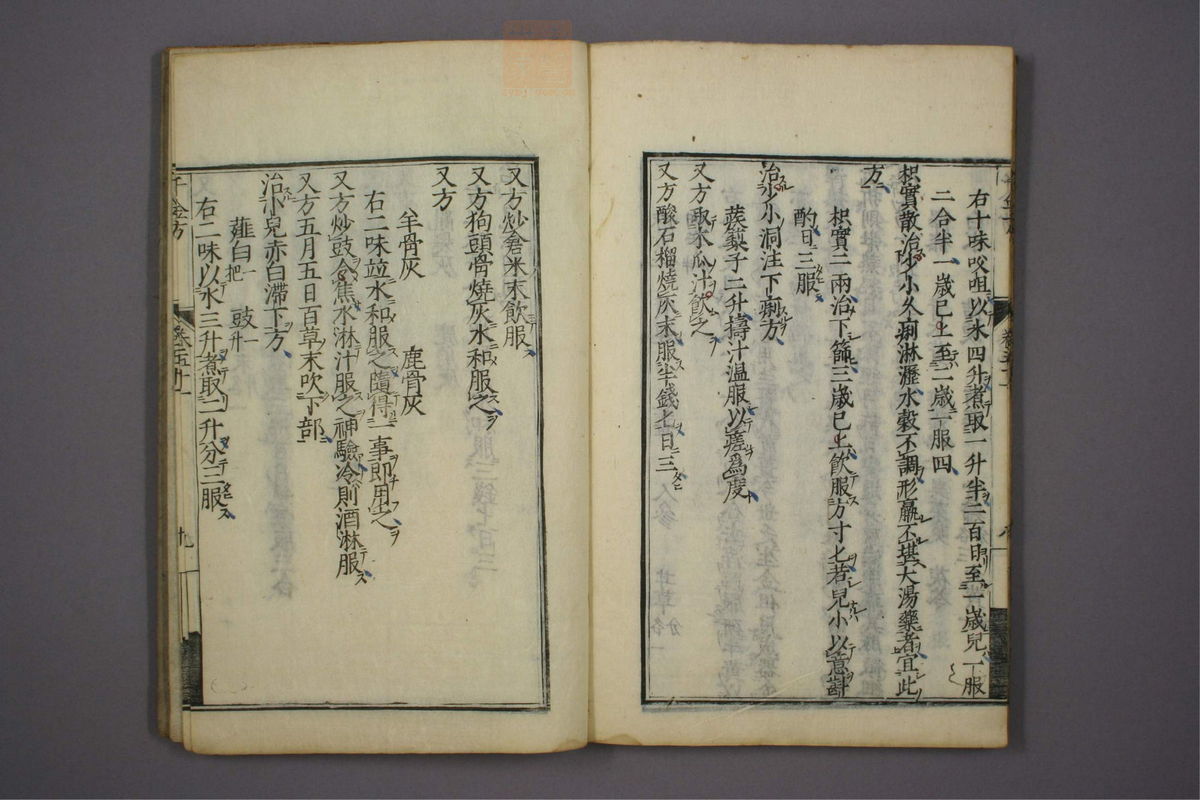 右十味㕮咀以水四升煮取一升半二百日至一歲兒一服
二合半一歲已上至二歲一服四
枳實散治少小久痢淋瀝水穀不調形羸不堪大湯藥者宜此
方
枳實二兩治下篩三歲已上飲服方寸匕若兒小以意斟
酌日三服
治少小洞注下痢方
蒺藜子二升擣汁温服以瘥爲度
又方取木瓜汁飲之
又方酸石榴燒灰末服半錢匕日三
又方炒倉米末飲服
又方狗頭骨燒灰水和服之
又方
羊骨灰　鹿骨灰
右二味竝水和服之隨得一事即用之
又方炒豉令焦水淋汁服之神驗冷則酒淋服
又方五月五日百草末吹下部
治小兒赤白滯下方
薤白一把　豉一升
右二味以水三升煮取二升分三服
千金方
卷五
十九